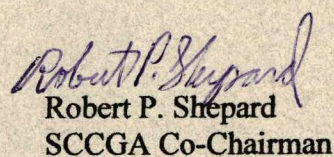 Robert P. Shepard
Robert P. Shepard
SCCGA Co-Chairman